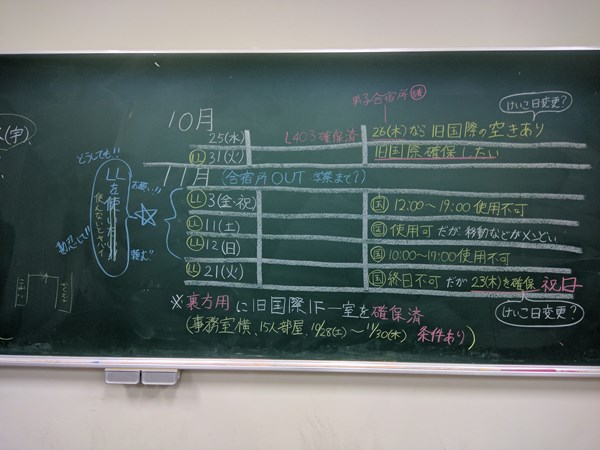 (字)
男子合宿所
けいこ日変更?
10月
25(水) L403確保済 26(木)なら旧国際の空きあり
LL 31(火) 旧国際確保したい
11月 (合宿所OUT 卒業まで?)
LL 3(金・祝) 国 12:00〜19:00 使用不可
LL 11(土) 国 使用可だが移動などがメンどい
LL 12(日) 国 10:00〜17:00使用不可
LL 21(火) 国 終日不可だが23(木)を確保 祝日
けいこ日変更?
どうしても!!
LLを使いたい
使えないとヤバイ
頼む!!
※裏方用に旧国際1F一室を確保済
(事務室横、15人部屋、10/28(土)〜11/30(木) 条件あり)